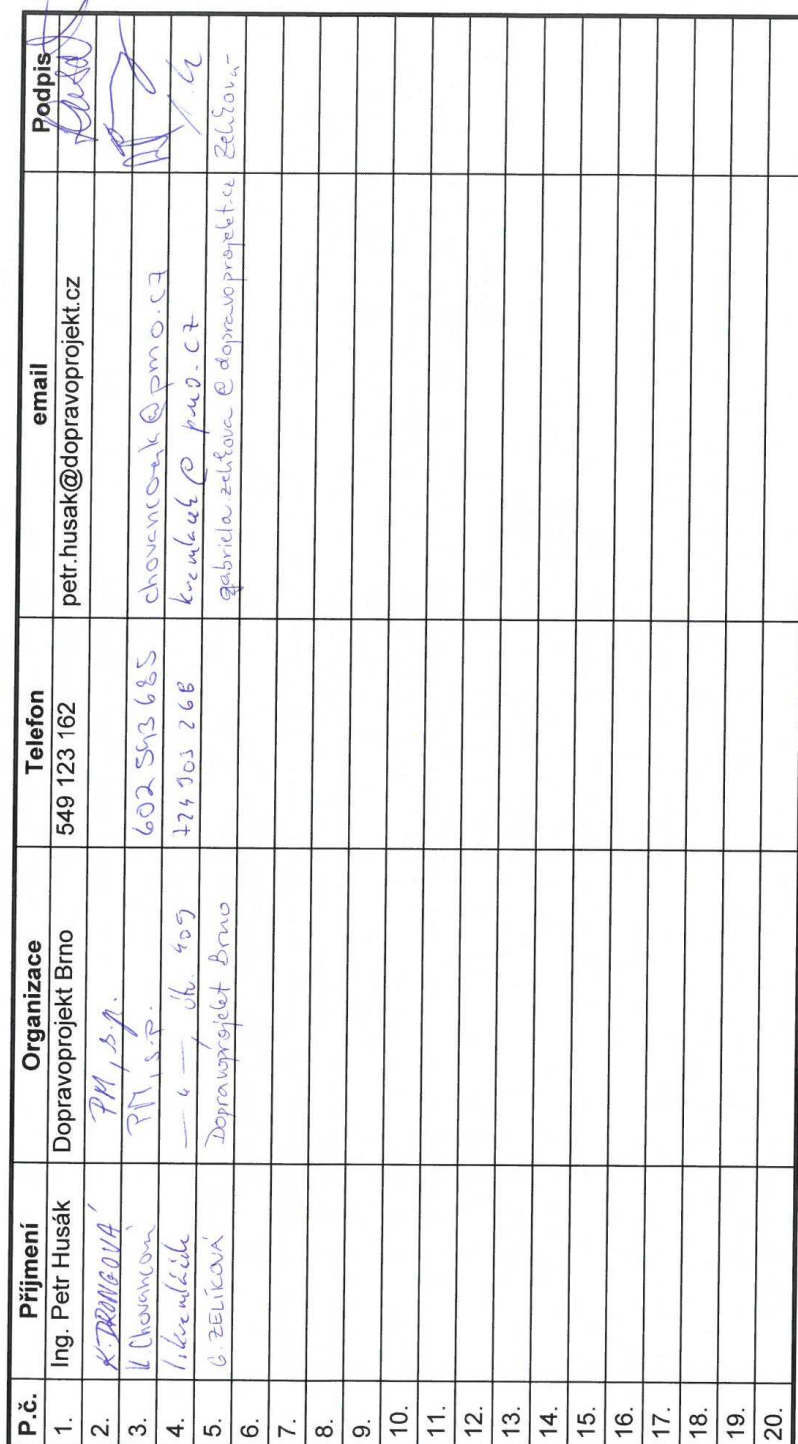 P.č. Příjmení Organizace Telefon email Podpis
1. Ing. Petr Husák Dopravoprojekt Brno 549 123 162 petr.husak@dopravoprojekt.cz
2. K. DRONGOVÁ PM, s.p.
3. PM, s.p. 602 543 685
4. — " — , úh. 409 724 303 268 @pmo.cz
5. G. ZELÍKOVÁ Dopravoprojekt Brno gabriela.zelikova@dopravoprojekt.cz Zelíková
6.
7.
8.
9.
10.
11.
12.
13.
14.
15.
16.
17.
18.
19.
20.